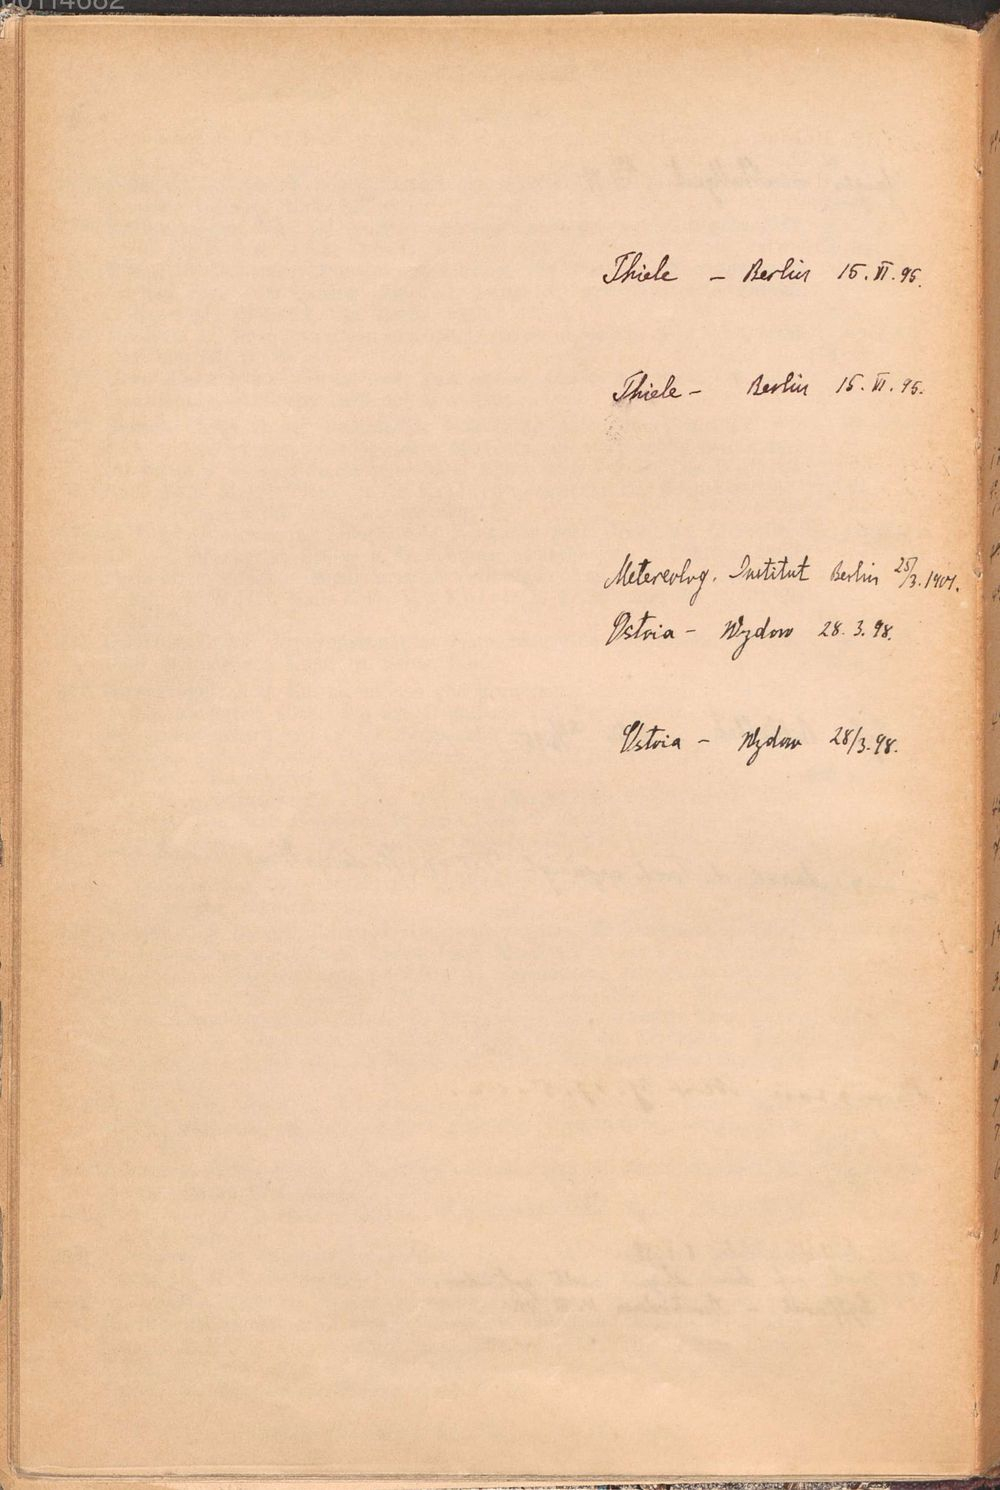 00114682
Thiele – Berlin 15. VI. 95.
Thiele – Berlin 15. VI. 95.
Metereolog. Institut Berlin 25/3. 1901.
Ostoia – Wzdow 28. 3. 98.
Ostoia – Wzdow 28/3. 98.